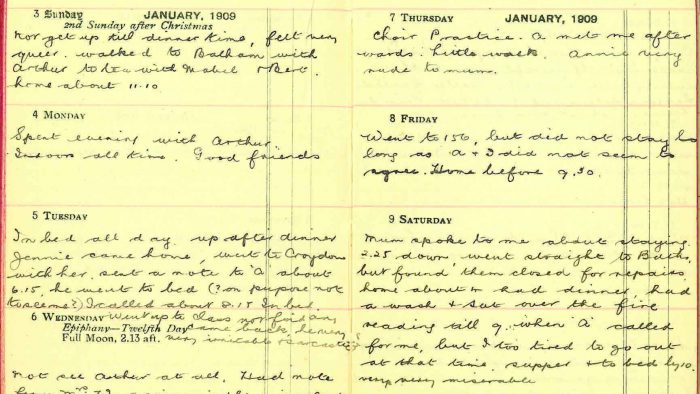 3 Sunday JANUARY, 1909
2nd Sunday after Christmas
not get up till dinner time, felt very
queer. walked to Balham with
Arthur to tea with Mabel & Bert.
home about 11.10
4 MONDAY
Spent evening with Arthur.
Indoors all time. Good friends
5 TUESDAY
In bed all day up after dinner
Jennie came home, went to Croydon
with her, sent a note to A about
6.15, he went to bed (? on purpose not
to see me?) I called about 8.15 In bed
6 WEDNESDAY Went up to class not find any
Epiphany—Twelfth Day came back,
Full Moon, 2.13 aft. very sarcastic
Not see Arthur at all. Had note
7 THURSDAY JANUARY, 1909
Choir Practice. A met me after
wards. Little walk. Annie very
rude to mum.
8 FRIDAY
Went to 156, but did not stay
long as A & I did not seem to
agree. Home before 9.30.
9 SATURDAY
Mum spoke to me about staying.
2.25 down, went straight to Baths.
but found them closed for repairs
home about 4 had dinner, had
a wash & sat over the fire
reading till 9. when A called
for me, but I too tired to go out
at that time. supper & to bed by 10.
very very miserable